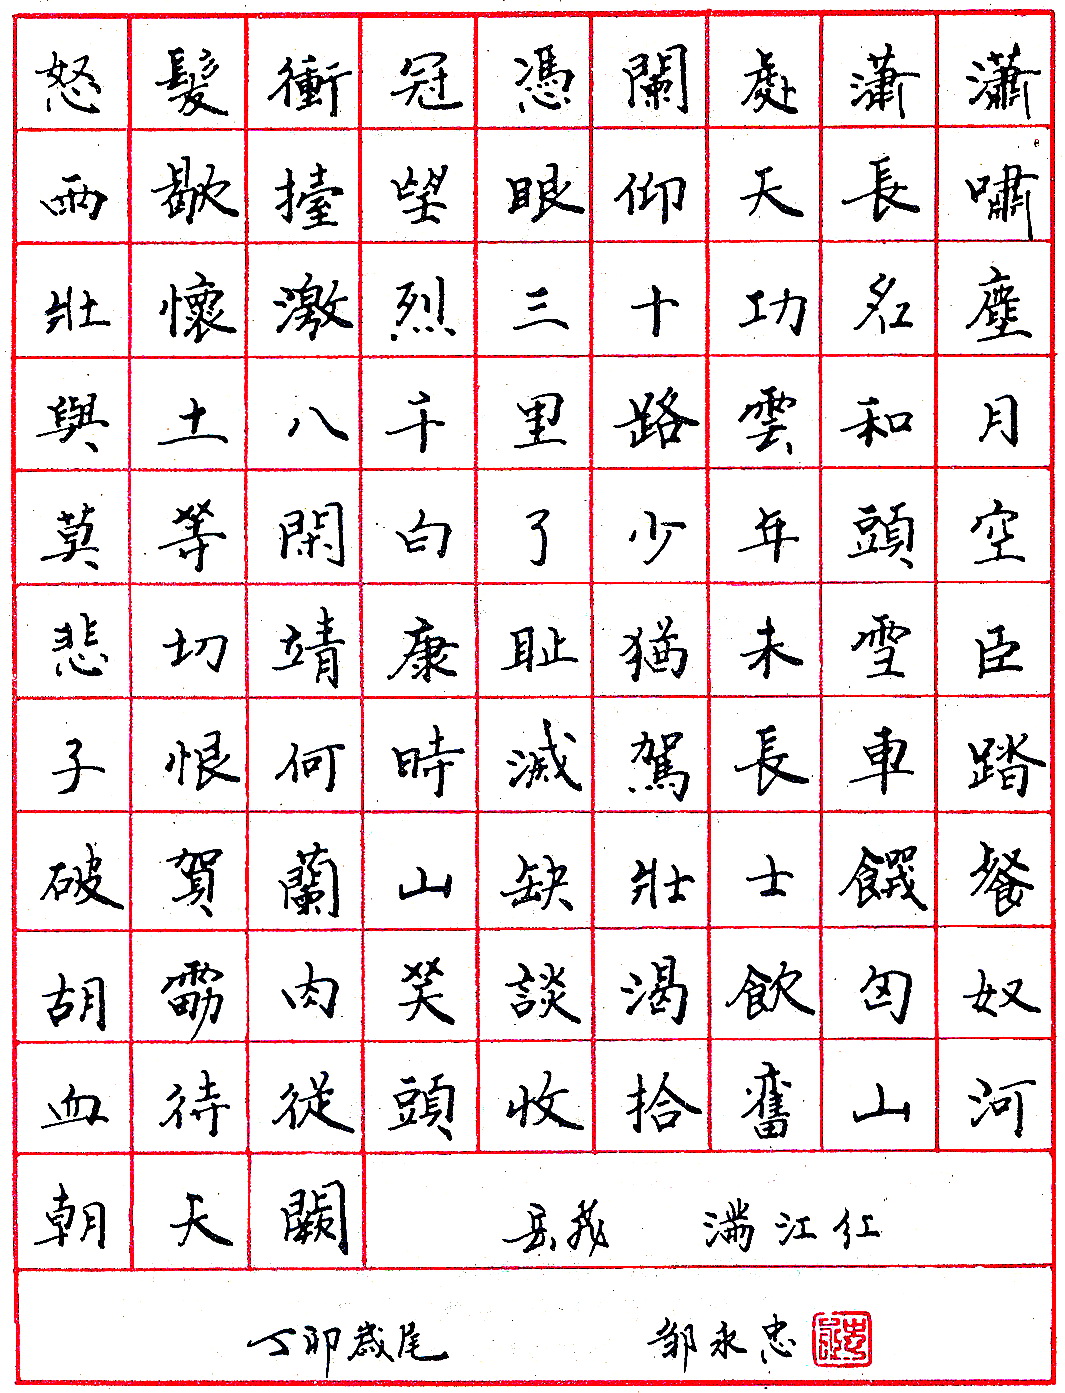 怒髮衝冠憑闌處瀟瀟
雨歇擡望眼仰天長嘯
壯懷激烈三十功名塵
與土八千里路雲和月
莫等閑白了少年頭空
悲切靖康耻猶未雪臣
子恨何時滅駕長車踏
破賀蘭山缺壯士饑餐
胡虜肉笑談渴飲匈奴
血待從頭收拾舊山河
朝天闕 岳飛 滿江红
丁卯歲尾 邹永忠